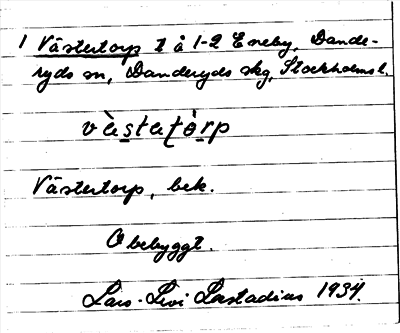 1 Västertorp t å 1-2 Eneby, Dande-
ryds sn, Danderyds skg, Stockholms l.
vàstatòrp
Västertorp, bek.
Obebyggt.
Lars-Levi Læstadius 1934.